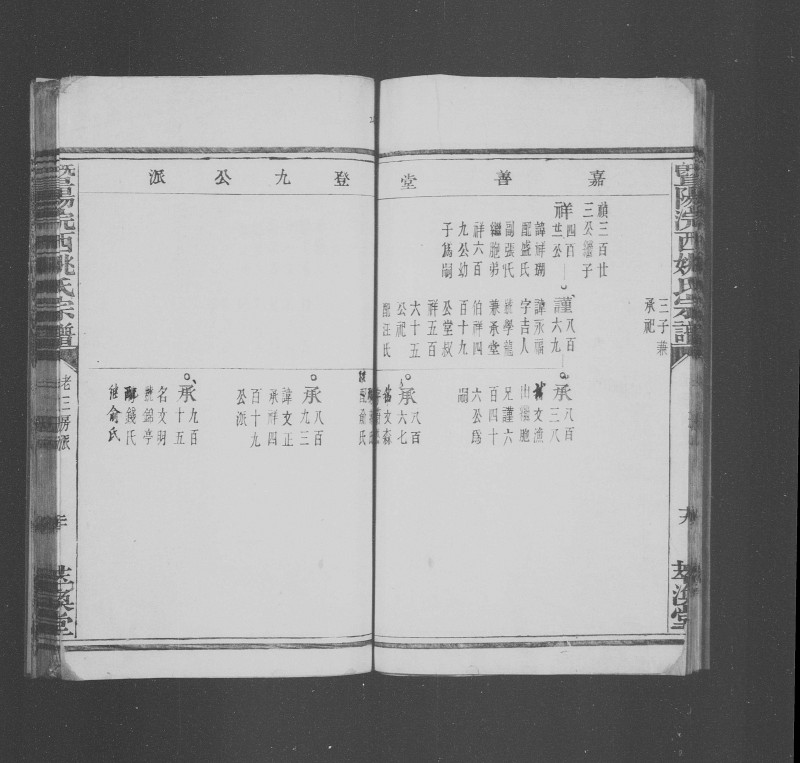 暨陽浣西姚氏宗譜
三子兼
承祀
嘉善堂登九公派
禎三百廿
三公繼子
祥四百一
廿公
諱祥瑚
配盛氏
副張氏
繼胞弟
祥六百
九公幼
子爲嗣
謹八百
六九
諱永福
字吉人
號學龍
兼承堂
伯祥四
百十九
公堂叔
祥五百
六十五
公祀
配汪氏
承八百
三八
文漁
出繼胞
兄謹六
百四十
六公爲
嗣
承八百
六七
名文森
配俞氏
承八百
九三
諱文正
承祥四
百十九
公派
承九百
十五
名文財
號錦亭
配錢氏
繼俞氏
暨陽浣西姚氏宗譜
老三房派
萃渙堂